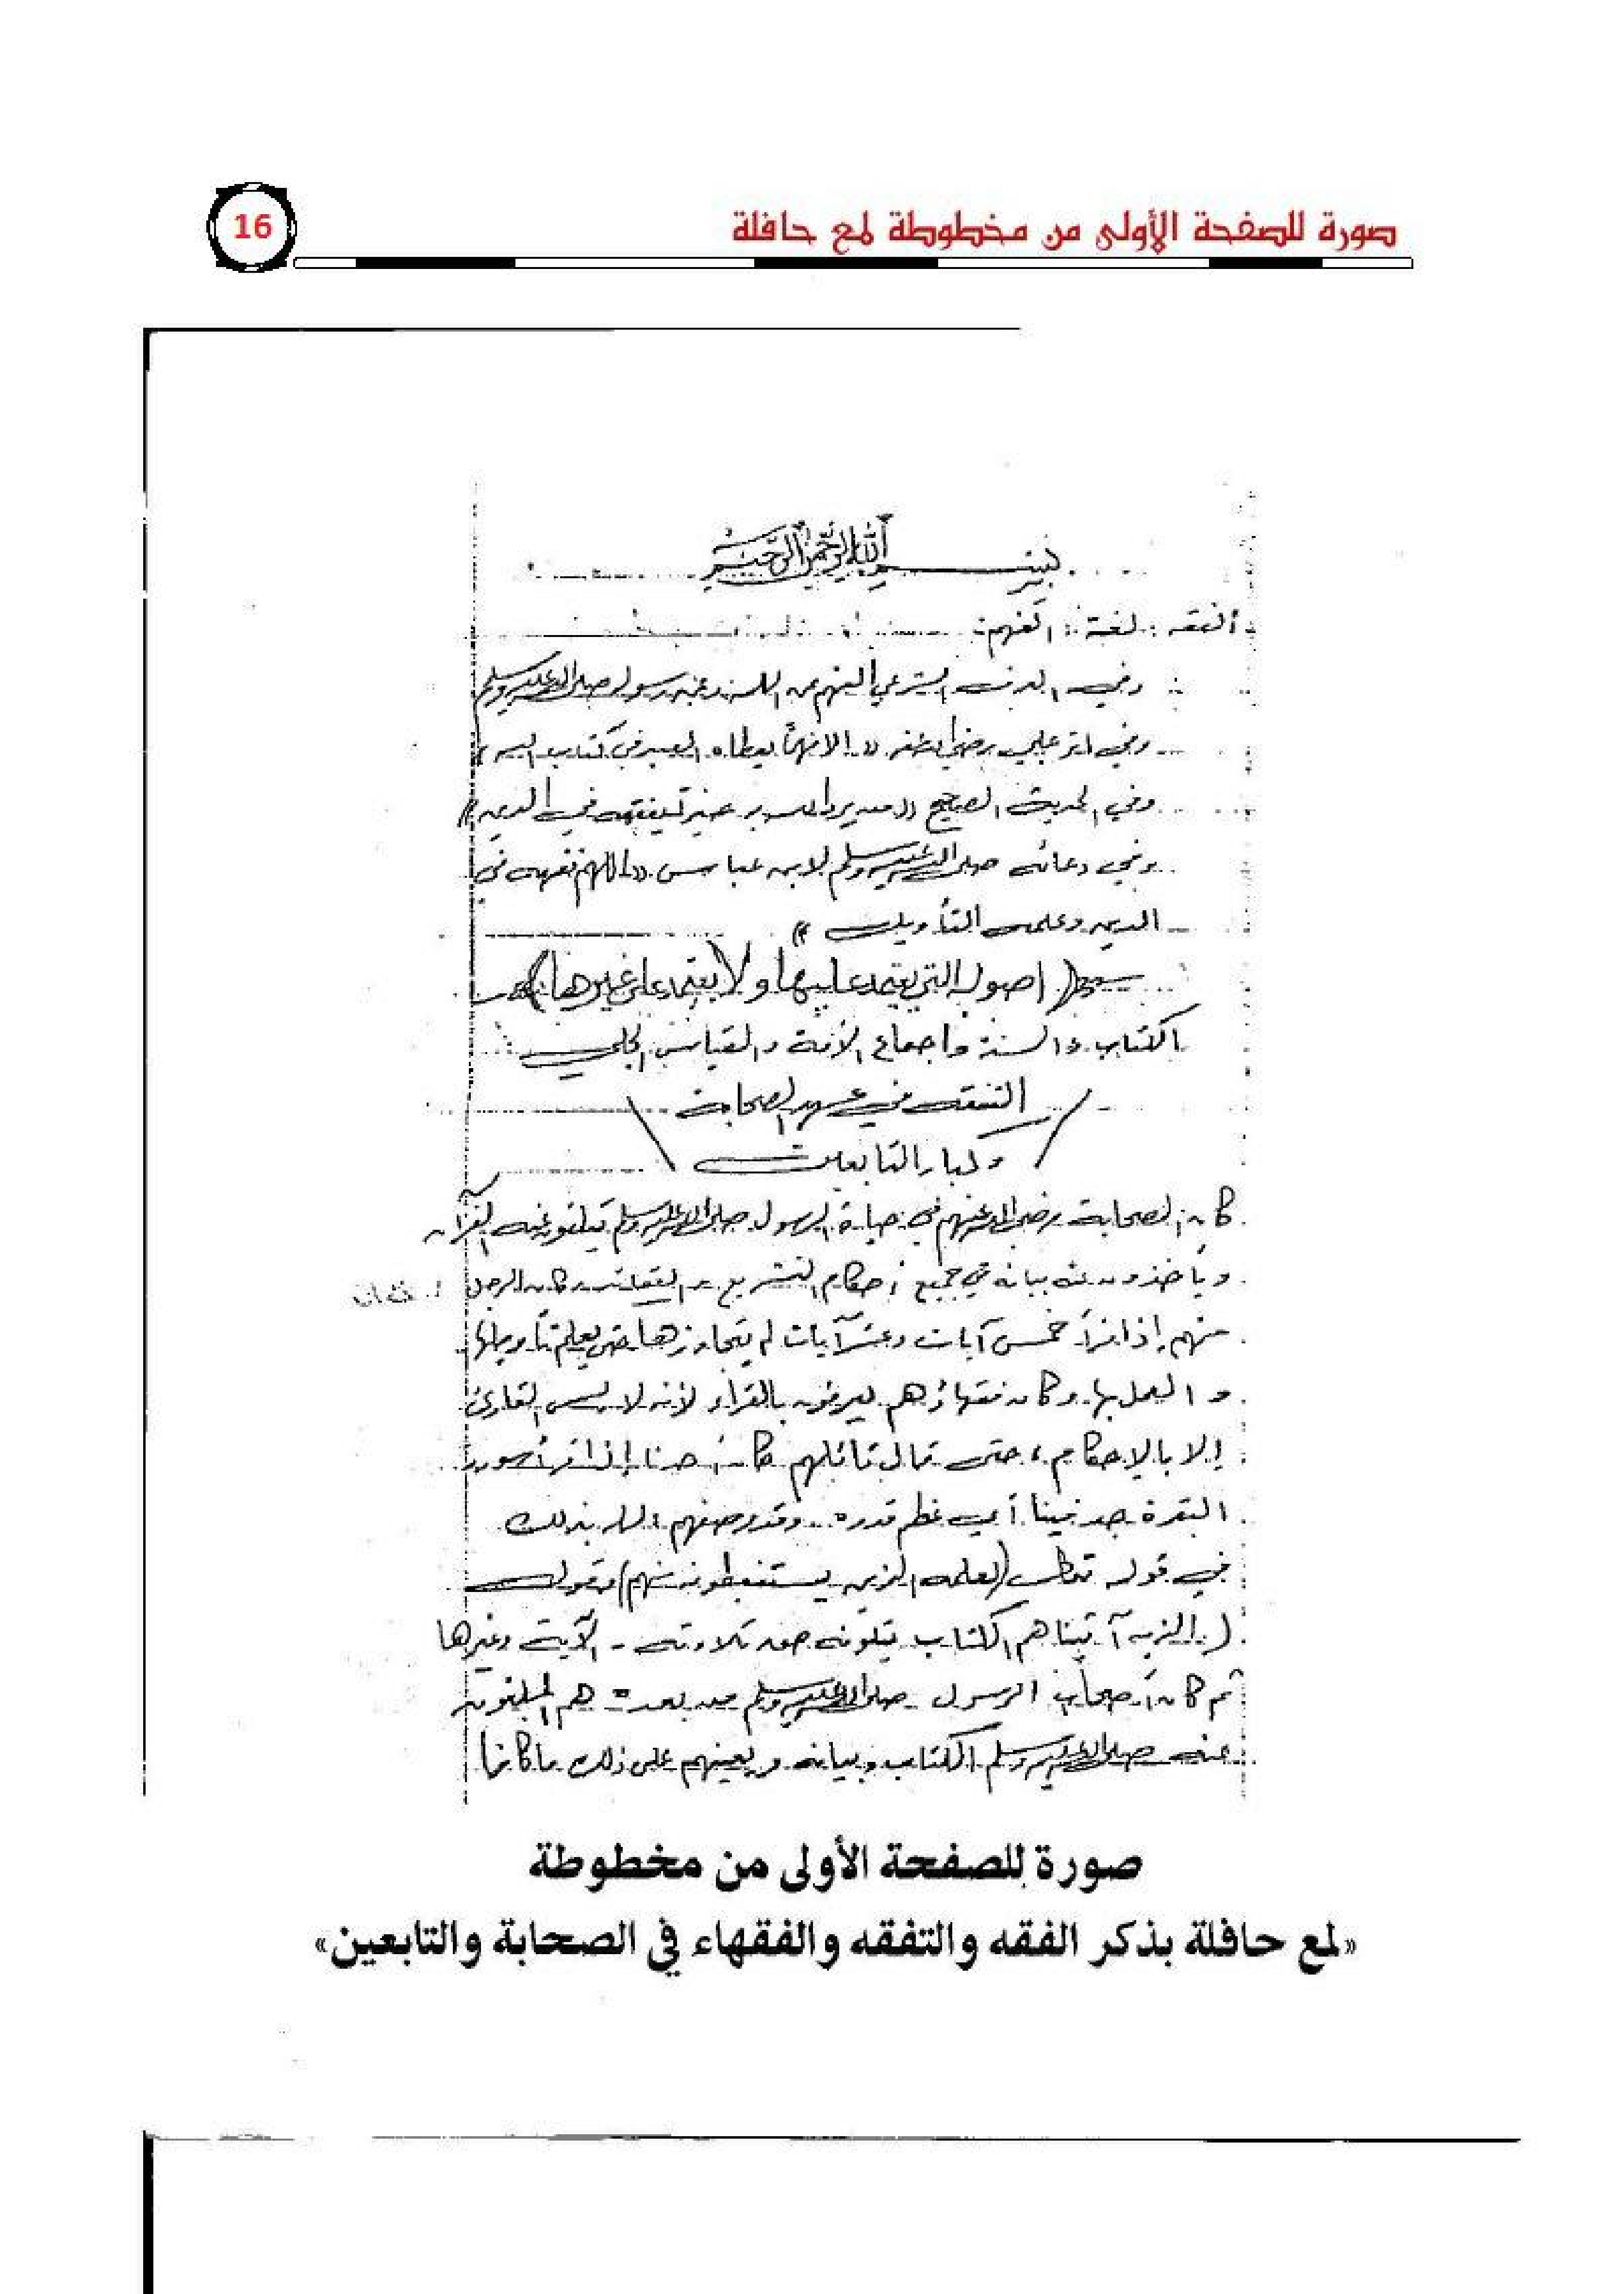 صورة للصفحة الأولى من مخطوطة لمع حافلة
16
بسم الله الرحمن الرحيم
الفقه : لغة : الفهم :
وفي العرف الشرعي الفهم عن الله وعن رسوله صلى الله عليه وسلم
وفي أثر علي رضي الله عنه (( إلا فهمًا يعطاه العبد في كتاب الله ))
وفي الحديث الصحيح (( من يرد الله به خيرا يفقهه في الدين ))
وفي دعائه صلى الله عليه وسلم لابن عباس (( اللهم فقهه في
الدين وعلمه التأويل ))
(أصوله التي يعتمد عليها ولا يعتمد على غيرها)
الكتاب والسنة وإجماع الأمة والقياس الجلي
التفقه في عهد الصحابة
وكبار التابعين
كان الصحابة رضي الله عنهم في حياة الرسول صلى الله عليه وسلم يتلقون عنه القرآن
ويأخذون عنه بيانه في جميع أحكام التشريع و كان الرجل
منهم إذا قرأ خمس آيات وعشر آيات لم يتجاوزها حتى يعلم تأويلها
والعمل بها. وكان فقهاؤهم يعرفون بالقراء لأنه لا القارئ
إلا بالاحكام، حتى قال قائلهم كان أحدنا إذا قرأ سورة
البقرة جد فينا أي عظم قدره. وقد وصفهم الله بذلك
في قوله تعالى (لعلمه الذين يستنبطونه منهم) وقوله
(الذين آتيناهم الكتاب يتلونه حق تلاوته - الآية وغيرها
ثم كان أصحاب الرسول صلى الله عليه وسلم من بعده هم المبلغون
عنه صلى الله عليه وسلم الكتاب وبيانه ويعينهم على ذلك ما كانوا
صورة للصفحة الأولى من مخطوطة
«لمع حافلة بذكر الفقه والتفقه والفقهاء في الصحابة والتابعين»